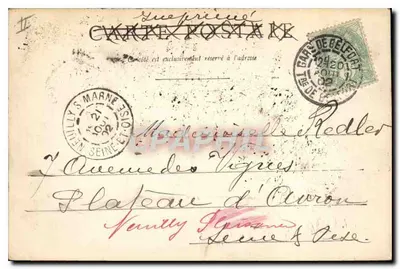 Imprimé
CARTE POSTALE
Ce côté est exclusivement réservé à l'adresse
GARE DE BELFORT
02
NEUILLY-S-MARNE SEINE-ET-OISE
21
02
Mademoiselle Redler
7 Avenue des Vignes
Plateau d'Avron
Neuilly Plaisance
Seine & Oise.